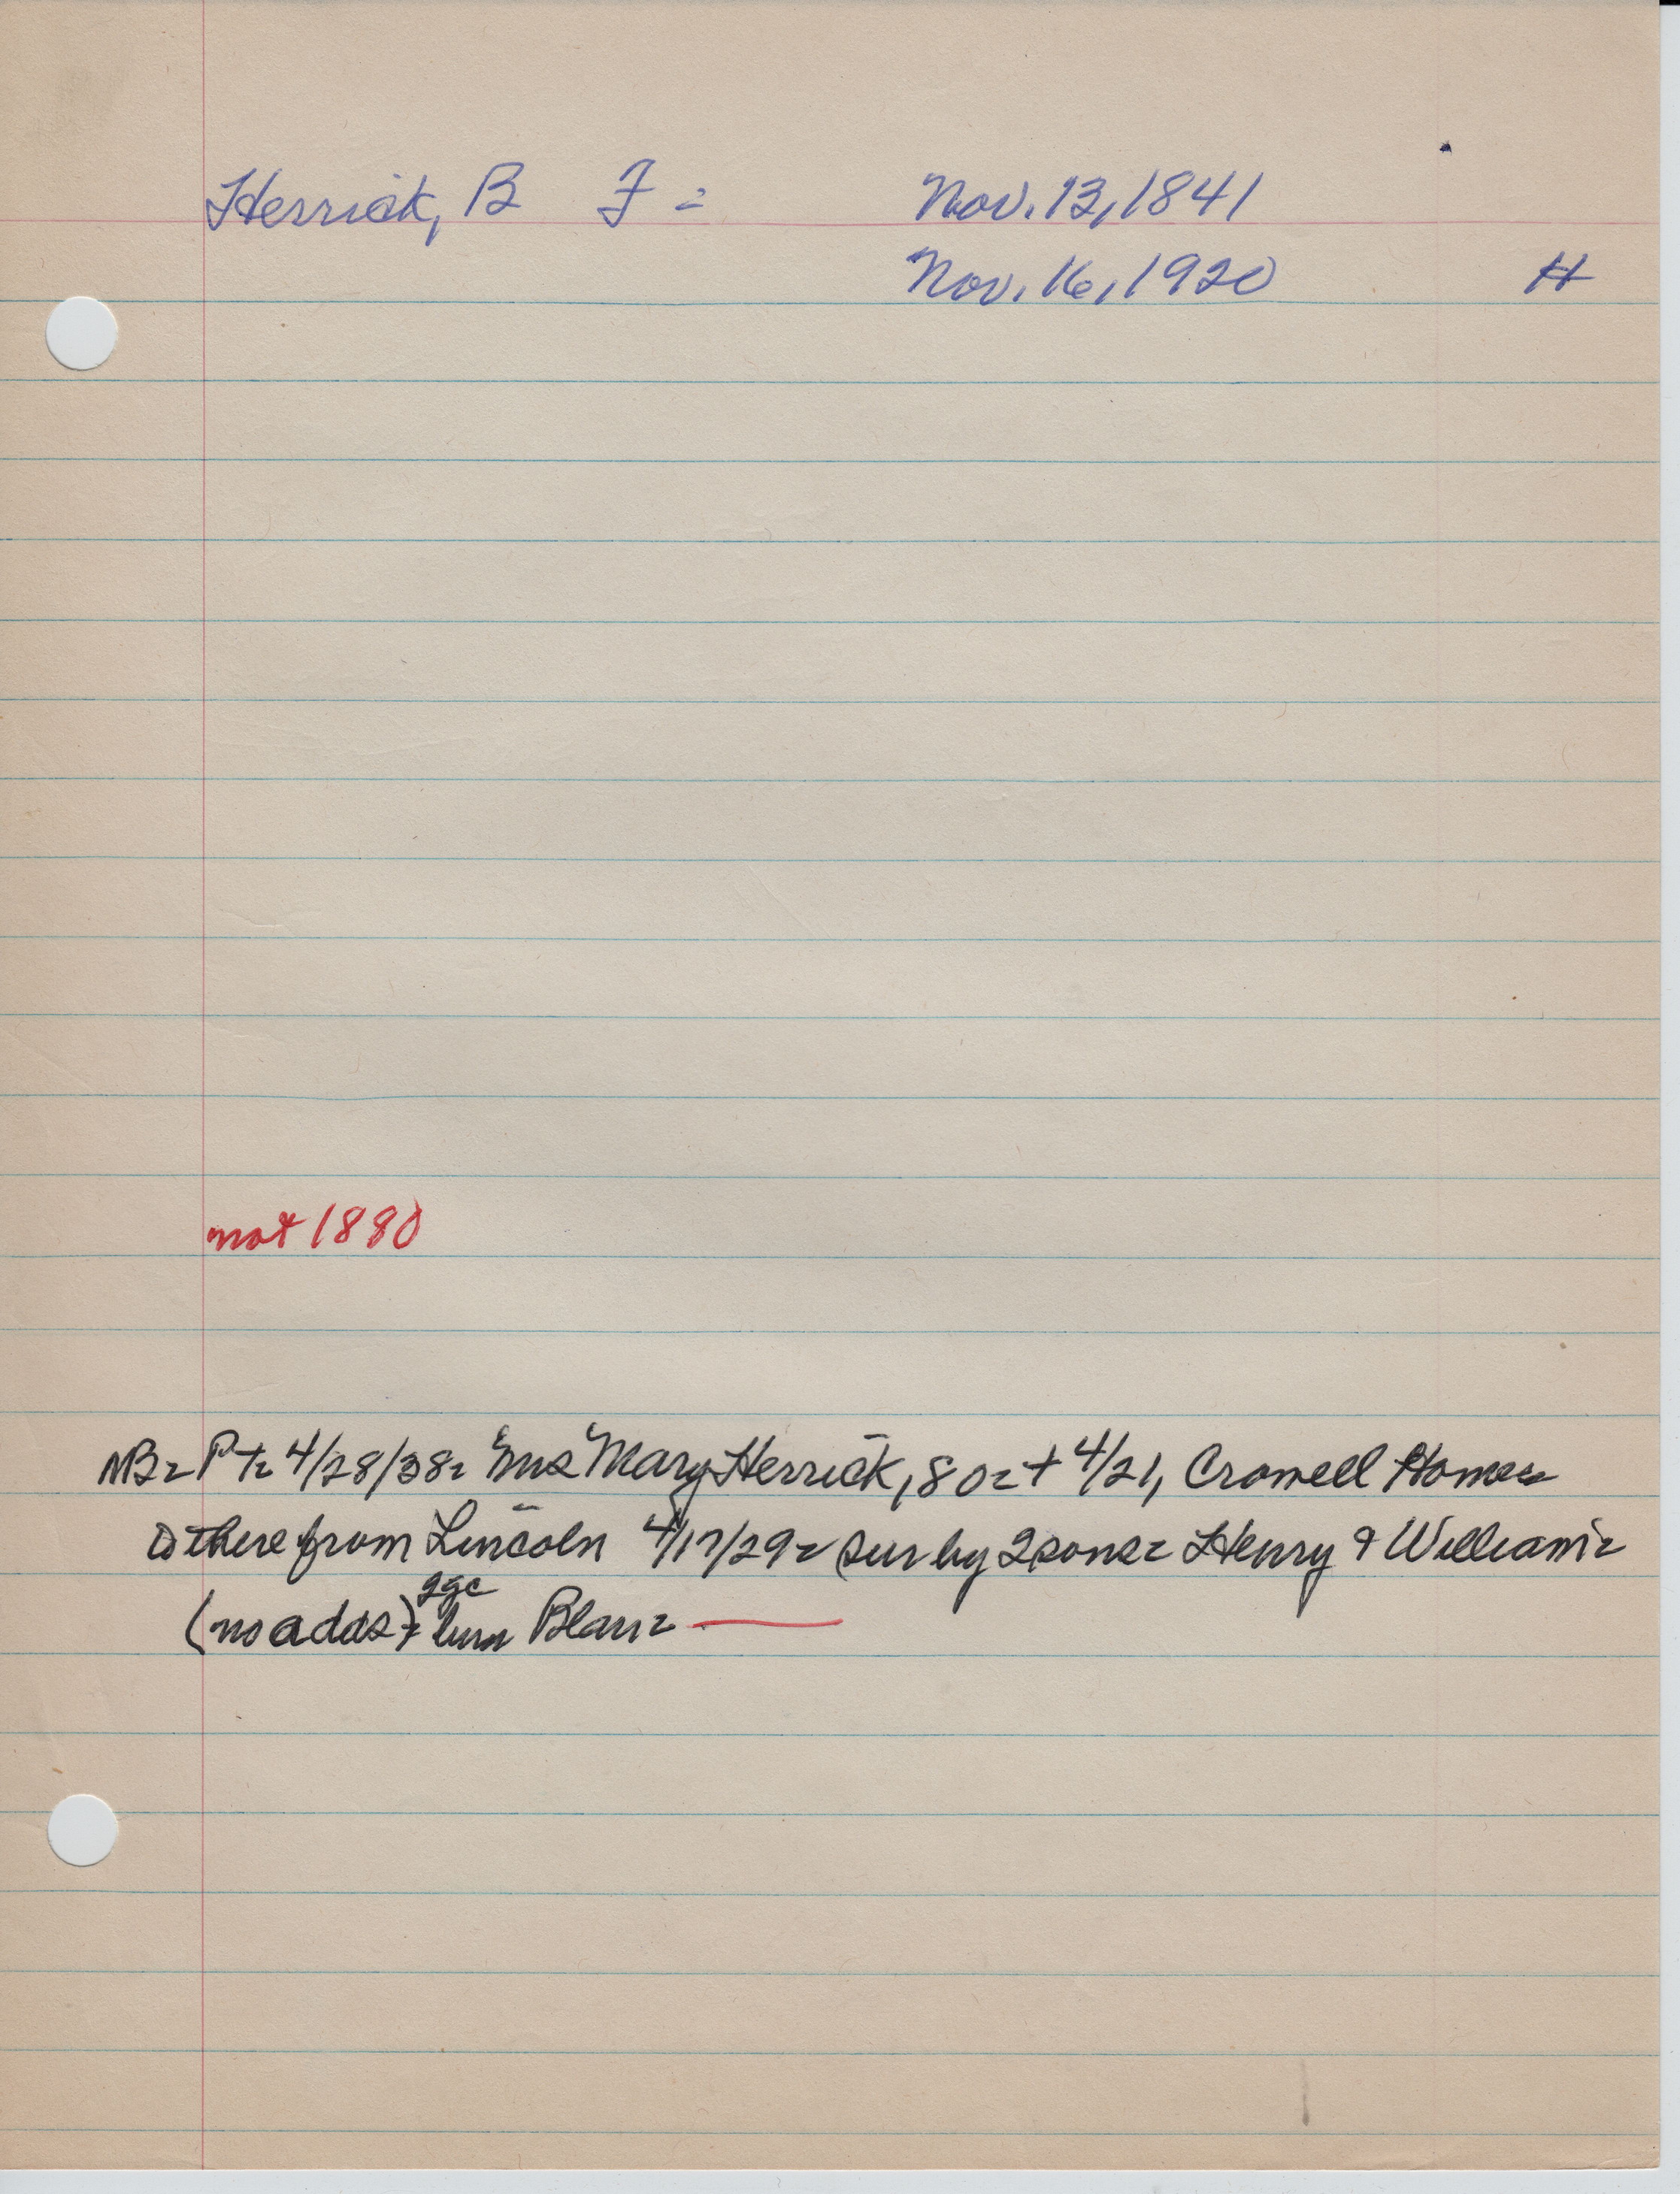 Herrick, B F = Nov. 13, 1841
Nov. 16, 1920 H
not 1880
NB= Pt= 4/28/38= Mrs Mary Herrick, 80= + 4/21, Crowell Home=
there from Lincoln 4/17/29= sur by 2 sons= Henry & William=
2gc
(no adds)= burn Blair=